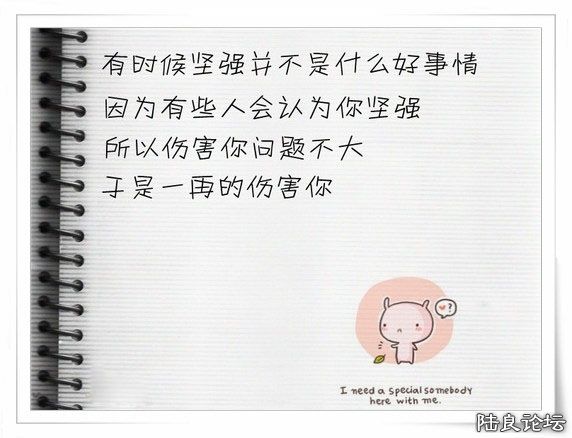 有时候坚强并不是什么好事情
因为有些人会认为你坚强
所以伤害你问题不大
于是一再的伤害你
?
I need a special somebody
here with me.
陆良论坛